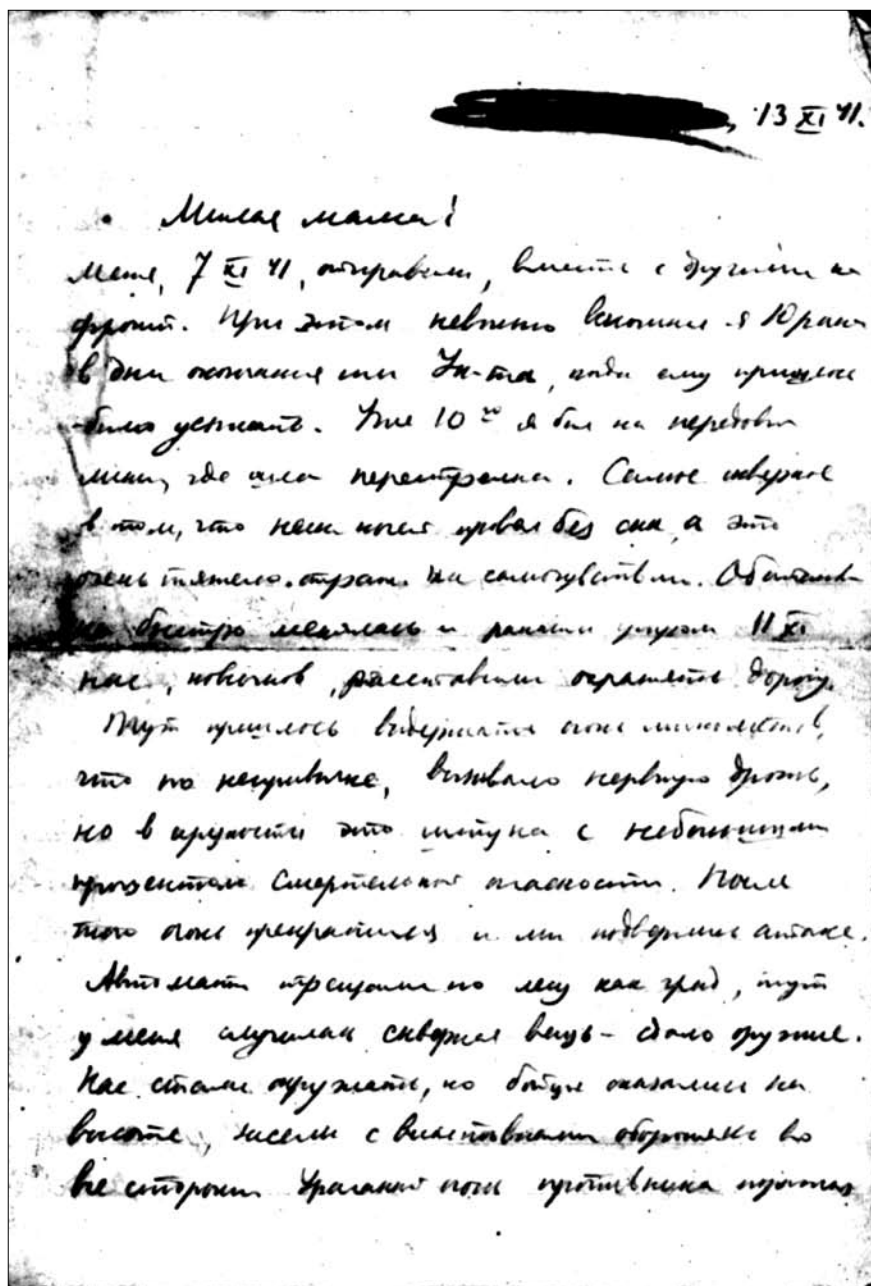 13 XI 41.
Милая мама!
Меня, 7 XI 41, отправили, вместе с другими на
фронт. При этом невольно вспомнил я Юрана
в дни окончания им Ун-та, когда ему пришлось
было уезжать. Уже 10го я был на передовой
линии, где шла перестрелка. Самое скверное
в том, что наши ночи без сна, а это
очень тяжело отраж. на самочувствии. Обстанов-
ка быстро менялась и ранним утром 11 XI
нас, новичков, расставили охранять дорогу.
Тут пришлось выдержать огонь минометов,
что по непривычке, вызвало нервную дрожь,
но в сущности это штука с небольшим
процентом смертельной опасности. После
того огонь прекратился и мы подверглись атаке.
Автоматы трещали по лесу как град, тут
у меня случилась скверная вещь - сдало оружие.
Нас стали окружать, но бойцы оказались на
высоте, засели с оборонялись во
все стороны. Ураганный огонь противника